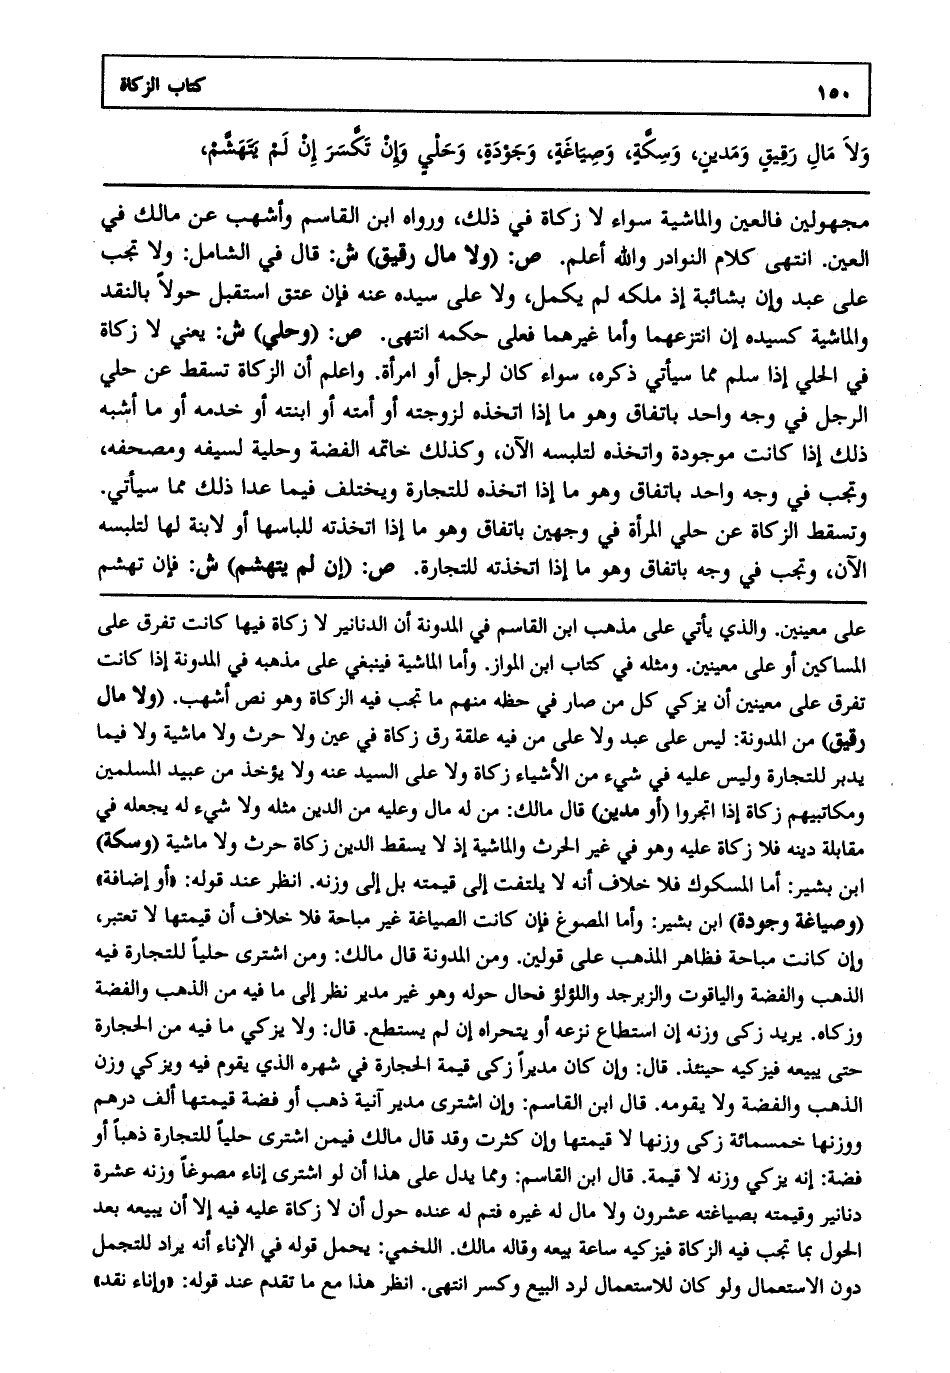 ١٥٠ كتاب الزكاة
وَلاَ مَالِ رَقِيقٍ وَمَدينٍ، وَسِكَّةٍ، وَصِيَاغَةٍ، وَجَوْدَةٍ، وَحَلْيٍ وَإِنْ تَكَسَّرَ إِنْ لَمْ يَتَهَشَّمْ،
مجهولين فالعين والماشية سواء لا زكاة في ذلك، ورواه ابن القاسم وأشهب عن مالك في
العين. انتهى كلام النوادر والله أعلم. ص: (ولا مال رقيق) ش: قال في الشامل: ولا تجب
على عبد وإن بشائبة إذ ملكه لم يكمل، ولا على سيده عنه فإن عتق استقبل حولاً بالنقد
والماشية كسيده إن انتزعهما وأما غيرهما فعلى حكمه انتهى. ص: (وحلي) ش: يعني لا زكاة
في الحلي إذا سلم مما سيأتي ذكره، سواء كان لرجل أو امرأة. واعلم أن الزكاة تسقط عن حلي
الرجل في وجه واحد باتفاق وهو ما إذا اتخذه لزوجته أو أمته أو ابنته أو خدمه أو ما أشبه
ذلك إذا كانت موجودة واتخذه لتلبسه الآن، وكذلك خاتمه الفضة وحلية لسيفه ومصحفه،
وتجب في وجه واحد باتفاق وهو ما إذا اتخذه للتجارة ويختلف فيما عدا ذلك مما سيأتي.
وتسقط الزكاة عن حلي المرأة في وجهين باتفاق وهو ما إذا اتخذته للباسها أو لابنة لها لتلبسه
الآن، وتجب في وجه باتفاق وهو ما إذا اتخذته للتجارة. ص: (إن لم يتهشم) ش: فإن تهشم
على معينين. والذي يأتي على مذهب ابن القاسم في المدونة أن الدنانير لا زكاة فيها كانت تفرق على
المساكين أو على معينين. ومثله في كتاب ابن المواز. وأما الماشية فينبغي على مذهبه في المدونة إذا كانت
تفرق على معينين أن يزكي كل من صار في حظه منهم ما تجب فيه الزكاة وهو نص أشهب. (ولا مال
رقيق) من المدونة: ليس على عبد ولا على من فيه علقة رق زكاة في عين ولا حرث ولا ماشية ولا فيما
يدبر للتجارة وليس عليه في شيء من الأشياء زكاة ولا على السيد عنه ولا يؤخذ من عبيد المسلمين
ومكاتبيهم زكاة إذا اتجروا (أو مدين) قال مالك: من له مال وعليه من الدين مثله ولا شيء له يجعله في
مقابلة دينه فلا زكاة عليه وهو في غير الحرث والماشية إذ لا يسقط الدين زكاة حرث ولا ماشية (وسكة)
ابن بشير: أما المسكوك فلا خلاف أنه لا يلتفت إلى قيمته بل إلى وزنه. انظر عند قوله: «أو إضافة»
(وصياغة وجودة) ابن بشير: وأما المصوغ فإن كانت الصياغة غير مباحة فلا خلاف أن قيمتها لا تعتبر،
وإن كانت مباحة فظاهر المذهب على قولين. ومن المدونة قال مالك: ومن اشترى حلياً للتجارة فيه
الذهب والفضة والياقوت والزبرجد واللؤلؤ فحال حوله وهو غير مدير نظر إلى ما فيه من الذهب والفضة
وزكاه. يريد زكى وزنه إن استطاع نزعه أو يتحراه إن لم يستطع. قال: ولا يزكي ما فيه من الحجارة
حتى يبيعه فيزكيه حينئذ. قال: وإن كان مديراً زكى قيمة الحجارة في شهره الذي يقوم فيه ويزكي وزن
الذهب والفضة ولا يقومه. قال ابن القاسم: وإن اشترى مدير آنية ذهب أو فضة قيمتها ألف درهم
ووزنها خمسمائة زكى وزنها لا قيمتها وإن كثرت وقد قال مالك فيمن اشترى حلياً للتجارة ذهباً أو
فضة: إنه يزكي وزنه لا قيمة. قال ابن القاسم: ومما يدل على هذا أن لو اشترى إناء مصوغاً وزنه عشرة
دنانير وقيمته بصياغته عشرون ولا مال له غيره فتم له عنده حول أن لا زكاة عليه فيه إلا أن يبيعه بعد
الحول بما تجب فيه الزكاة فيزكيه ساعة بيعه وقاله مالك. اللخمي: يحمل قوله في الإناء أنه يراد للتجمل
دون الاستعمال ولو كان للاستعمال لرد البيع وكسر انتهى. انظر هذا مع ما تقدم عند قوله: «وإناء نقد»